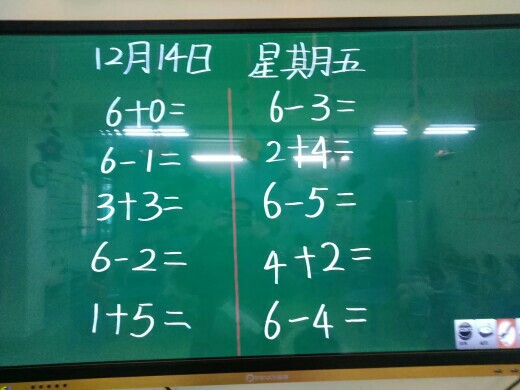 12月14日 星期五
6+0= 6-3=
6-1= 2+4=
3+3= 6-5=
6-2= 4+2=
1+5= 6-4=